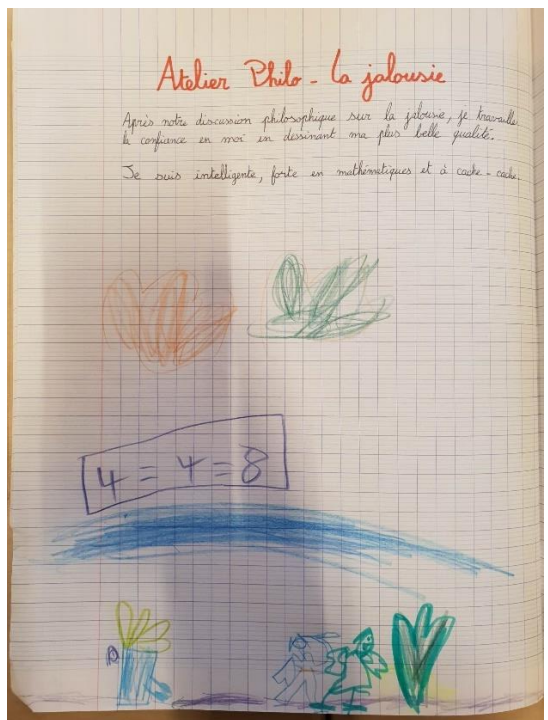 Atelier Philo - La jalousie
Après notre discussion philosophique sur la jalousie, je travaille
la confiance en moi en dessinant ma plus belle qualité.
Je suis intelligente, forte en mathématiques et à cache-cache.
4 = 4 = 8